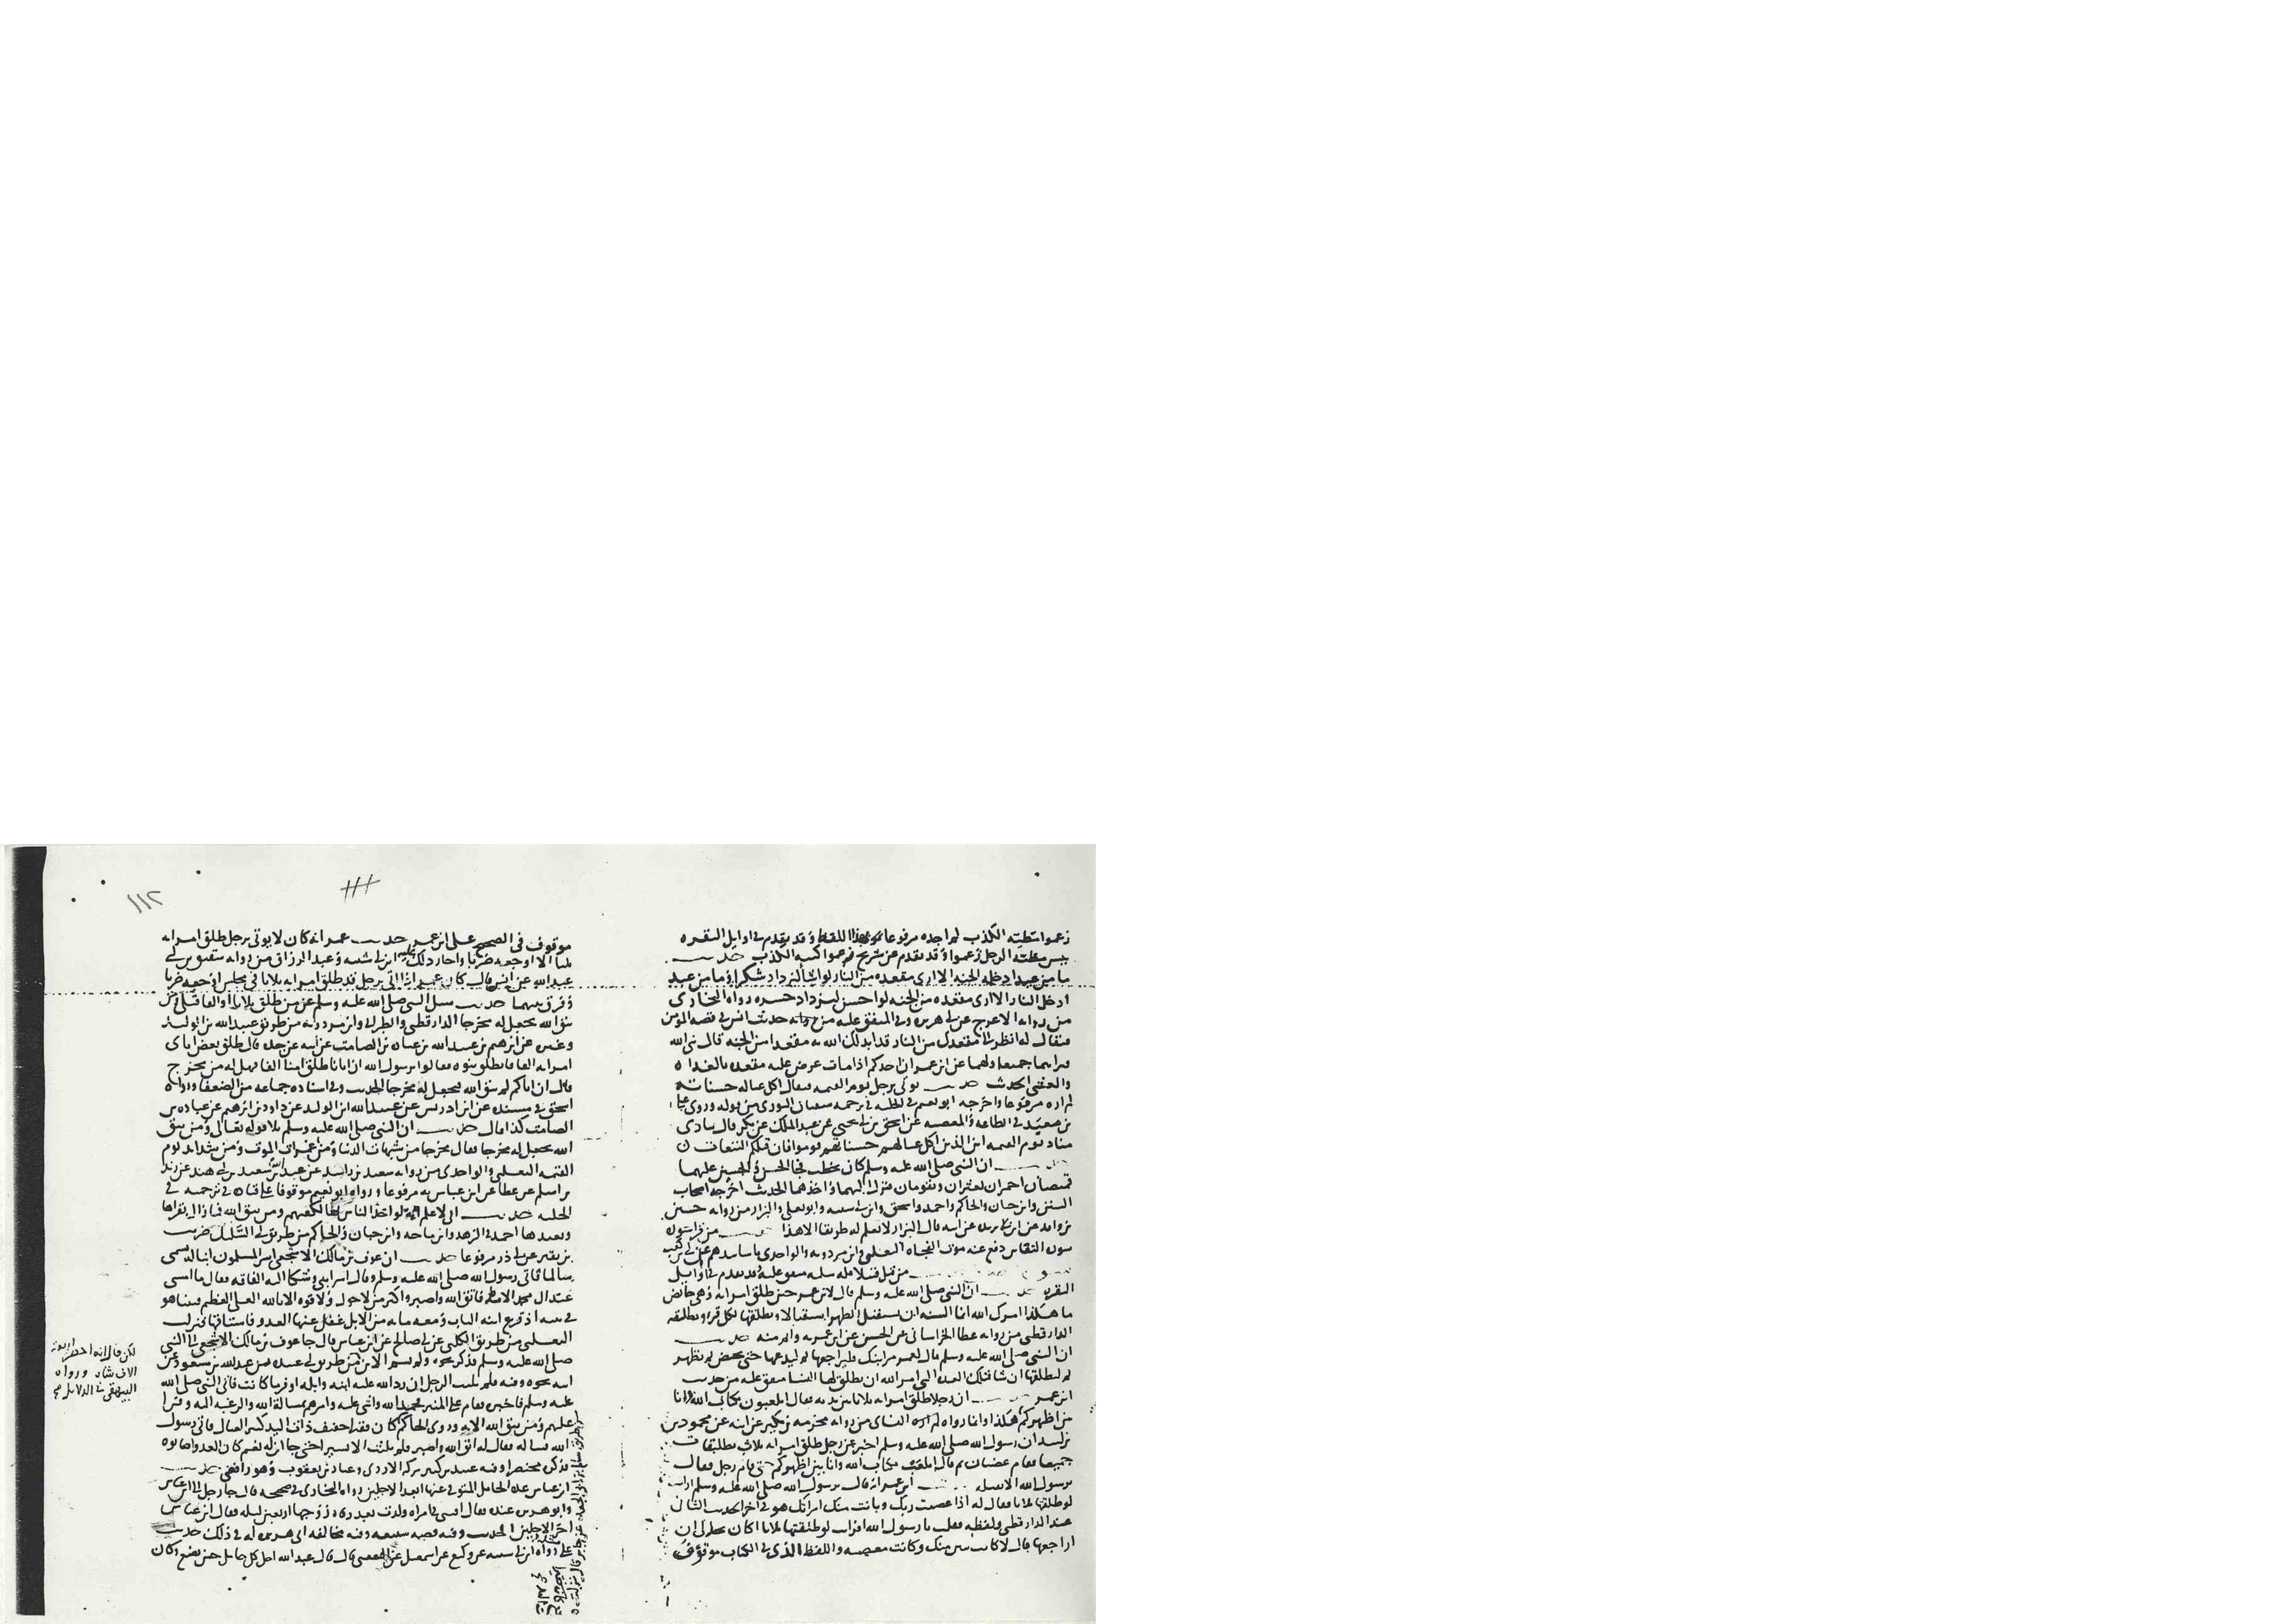 زعموا مطية الكذب لم اجده مرفوعا بهذا اللفظ وقد تقدم في اوايل البقره
بيس مطية الرجل زعموا وقد تقدم عن شريح زعموا كنية الكذب حديث
ما من عبد ادخله الجنه الا ارى مقعده من النار لو اسا ليزداد شكرا وما من عبد
ادخل النار الا ارى مقعده من الجنه لو احسن ليزداد حسره رواه البخارى
من روايه الاعرج عن ابى هريره وفى المتفق عليه من روايه حديث انس فى قصه المومن
فيقال له انظر الى مقعدك من النار قد ابدلك الله به مقعدا من الجنه قال نبى الله
فيراهما جميعا ولهما عن ابن عمر ان احدكم اذا مات عرض عليه مقعده بالغداه
والعشى الحديث حديث يوتى برجل يوم القيمه فيقال اكل عياله حسناته
لم اره مرفوعا واخرجه ابو نعيم فى الحليه فى ترجمه سفيان الثورى من قوله وروى على
بن معبد فى الطاعه والمعصيه عن اسحق بن ابى يحيى عن عبد الملك عن بكر قال ينادى
مناد يوم القيمه اين الذين اكل عيالهم حسناتهم قوموا فان قبلكم التبعات
حديث ان النبى صلى الله عليه وسلم كان يخطب فجا الحسن والحسين عليهما
قميصان احمران يعثران ويقومان فنزل اليهما واخذهما الحديث اخرجه اصحاب
السنن وابن حبان والحاكم واحمد واسحق وابن ابى شيبه وابو يعلى والبزار من روايه حسين
بن واقد عن ابن بريده عن ابيه قال البزار لا نعلم له طريقا الا هذا حديث من قرا سوره
سوره التغابن دفع عنه موت الفجاه الثعلبى وابن مردويه والواحدى باسانيدهم عن ابى بن كعب
حديث من قتل قتيلا فله سلبه متفق عليه وقد تقدم فى اوايل
البقره حديث ان النبى صلى الله عليه وسلم قال لابن عمر حين طلق امراته وهى حايض
ما هكذا امرك الله انما السنه ان تستقبل الطهر استقبالا وتطلقها لكل قرء تطليقه
الدارقطنى من روايه عطا الخراسانى عن الحسن عن ابن عمر به واتم منه حديث
ان النبى صلى الله عليه وسلم قال لعمر مر ابنك فليراجعها ثم ليدعها حتى تحيض ثم تطهر
ثم ليطلقها ان شا فتلك العده التى امر الله ان يطلق لها النسا متفق عليه من حديث
ابن عمر حديث ان رجلا طلق امراته ثلاثا بين يديه فقال ايلعبون بكتاب الله وانا
بين اظهركم هكذا وانما رواه النساى من روايه مخرمه بن بكير عن ابيه عن محمود بن
بن لبيد ان رسول الله صلى الله عليه وسلم اخبر عن رجل طلق امراته ثلاث تطليقات
جميعا فقام غضبان ثم قال ايلعب بكتاب الله وانا بين اظهركم حتى قام رجل فقال
يرسول الله الا نقتله حديث ابن عمر انه قال يرسول الله صلى الله عليه وسلم ارايت
لو طلقتها ثلاثا فقال له اذا عصيت ربك وبانت منك امراتك هو فى اخر الحديث الثانى
عند الدارقطنى ولفظه فقلت يا رسول الله افرايت لو طلقتها ثلاثا اكان يحل لى ان
اراجعها قال لا كانت تبين منك وكانت معصيه واللفظ الذى فى الكتاب موقوف
١١٢
موقوف فى الصحيح على ابن عمر حديث عمر انه كان لا يوتى برجل طلق امراته
ثلثا الا اوجعه ضربا واجاز ذلك عليه ابن ابى شيبه وعبد الرزاق من روايه شقيق بن ابى
عبد الله عن انس قال كان عمر اذا اتى برجل قد طلق امراته ثلاثا فى مجلس اوجعه ضربا
وفرق بينهما حديث سيل النبى صلى الله عليه وسلم عن من طلق ثلاثا او الفا فتلى ومن
يتق الله يجعل له مخرجا الدارقطنى والطبرانى وابن مردويه من طريق عبيد الله بن الوليد
وغيره عن ابرهيم بن عبيد الله بن عباده بن الصامت عن ابيه عن جده قال طلق بعض اباى
امراته الفا فانطلق بنوه فقالوا يرسول الله ان ابانا طلق امنا الفا فهل له من مخرج
قال ان اباكم لم يتق الله فيجعل له مخرجا الحديث وفى اسناده جماعه من الضعفا ورواه
اسحق فى مسنده عن ابن ادريس عن عبيد الله ابن الوليد عن داود بن ابرهيم عن عباده بن
الصامت كذا قال حديث ان النبى صلى الله عليه وسلم تلا قوله تعالى ومن يتق
الله يجعل له مخرجا فقال مخرجا من شبهات الدنيا ومن غمرات الموت ومن شدايد يوم
القيمه الثعلبى والواحدى من روايه سعيد بن راشد عن عبد الله بن سعيد بن ابى هند عن زيد
بن اسلم عن عطا عن ابن عباس به مرفوعا ورواه ابو نعيم موقوفا على قتاده فى ترجمته فى
الحليه حديث انى لاعلم ايه لو اخذ الناس بها لكفتهم ومن يتق الله فما زال يقراها
ويعيدها احمد فى الزهد وابن ماجه وابن حبان والحاكم من طريق ابى السليل ضريب
بن نقير عن ابى ذر مرفوعا حديث ان عوف بن مالك الاشجعى اسر المسلمون ابنا له يسمى
سالما فاتى رسول الله صلى الله عليه وسلم وقال اسر ابنى وشكا اليه الفاقه فقال ما امسى
عند ال محمد الا مد فاتق الله واصبر واكثر من لا حول ولا قوه الا بالله العلى العظيم فبينا هو
فى بيته اذ قرع ابنه الباب ومعه مايه من الابل غفل عنها العدو فاستاقها فنزلت
الثعلبى من طريق الكلبى عن ابى صالح عن ابن عباس قال جا عوف بن مالك الاشجعى الى النبى
صلى الله عليه وسلم فذكر نحوه ولم يسم الابن من طريق ابى عبيده عن عبد الله بن مسعود عن
ابيه نحوه وفيه فلم يلبث الرجل ان رد الله عليه ابنه وابله اوفر ما كانت فاتى النبى صلى الله
عليه وسلم فاخبره فقام على المنبر فحمد الله واثنى عليه وامرهم بمسالة الله والرغبه اليه وقرا
عليهم ومن يتق الله الايه وروى الحاكم كان فقيرا خفيف ذات اليد كثير العيال فاتى رسول
الله فساله فقال له اتق الله واصبر فلم يلبث الا يسيرا حتى جا ابن له بغنم كان العدو اصابوه
فذكره مختصرا وفيه عبيد بن كثير تركه الازدى وعباد بن يعقوب وهو رافضى حديث
ابن عباس عده الحامل المتوفى عنها ابعد الاجلين رواه البخارى فى صحيحه قال جا رجل الى ابن عباس
وابو هريره عنده فقال افتنى فى امراه ولدت بعد وفاه زوجها اربعين ليله فقال ابن عباس
اخر الاجلين الحديث وفيه قصه سبيعه وفيه مخالفه ابى هريره له فى ذلك حديث
على رواه ابن ابى شيبه عن وكيع عن اسمعيل عن الشعبى قال قال عبد الله اجل كل حامل حتى تضع وكان
لكن قال انه
الاف شاه ورواه
البيهقى فى الدلايل